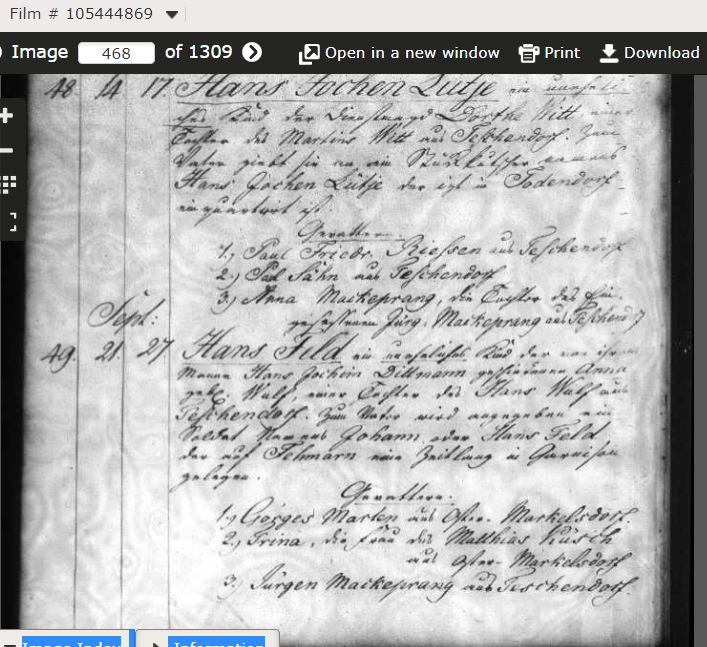 Film # 105444869
Image 468 of 1309 Open in a new window Print Download
48 14 17 Hans Jochen Lütje ein unehli-
ches Kind der Dienstmagd Dorthe Witt, einer
Tochter des Martins Witt aus Teschendorf. Zum
Vater giebt sie an ein Stückkutscher namens
Hans Jochen Lütje der itzt in Todendorf
einquartirt ist.
Gevattern.
1.) Paul Friedr. Riessen aus Teschendorf
2.) Paul Sähn aus Teschendorf
3.) Anna Mackeprang, die Tochter des Ein-
gesessenen Jürg. Mackeprang aus Teschend
Sept:
49. 21. 27. Hans Feld ein uneheliches Kind der von ihrem
Manne Hans Jochim Dittmann geschiedenen Anna
geb. Wulf, einer Tochter des Hans Wulf aus
Teschendorf. Zum Vater wird angegeben ein
Soldat Namens Johann oder Hans Feld
der auf Fehmarn eine Zeitlang in Garnison
gelegen.
Gevattern.
1.) Görges Marten aus Oster-Markelsdorf.
2.) Trina, die Frau des Matthias Rüsch
aus Oster-Markelsdorf
3.) Jürgen Mackeprang aus Teschendorf.
Image Index Information